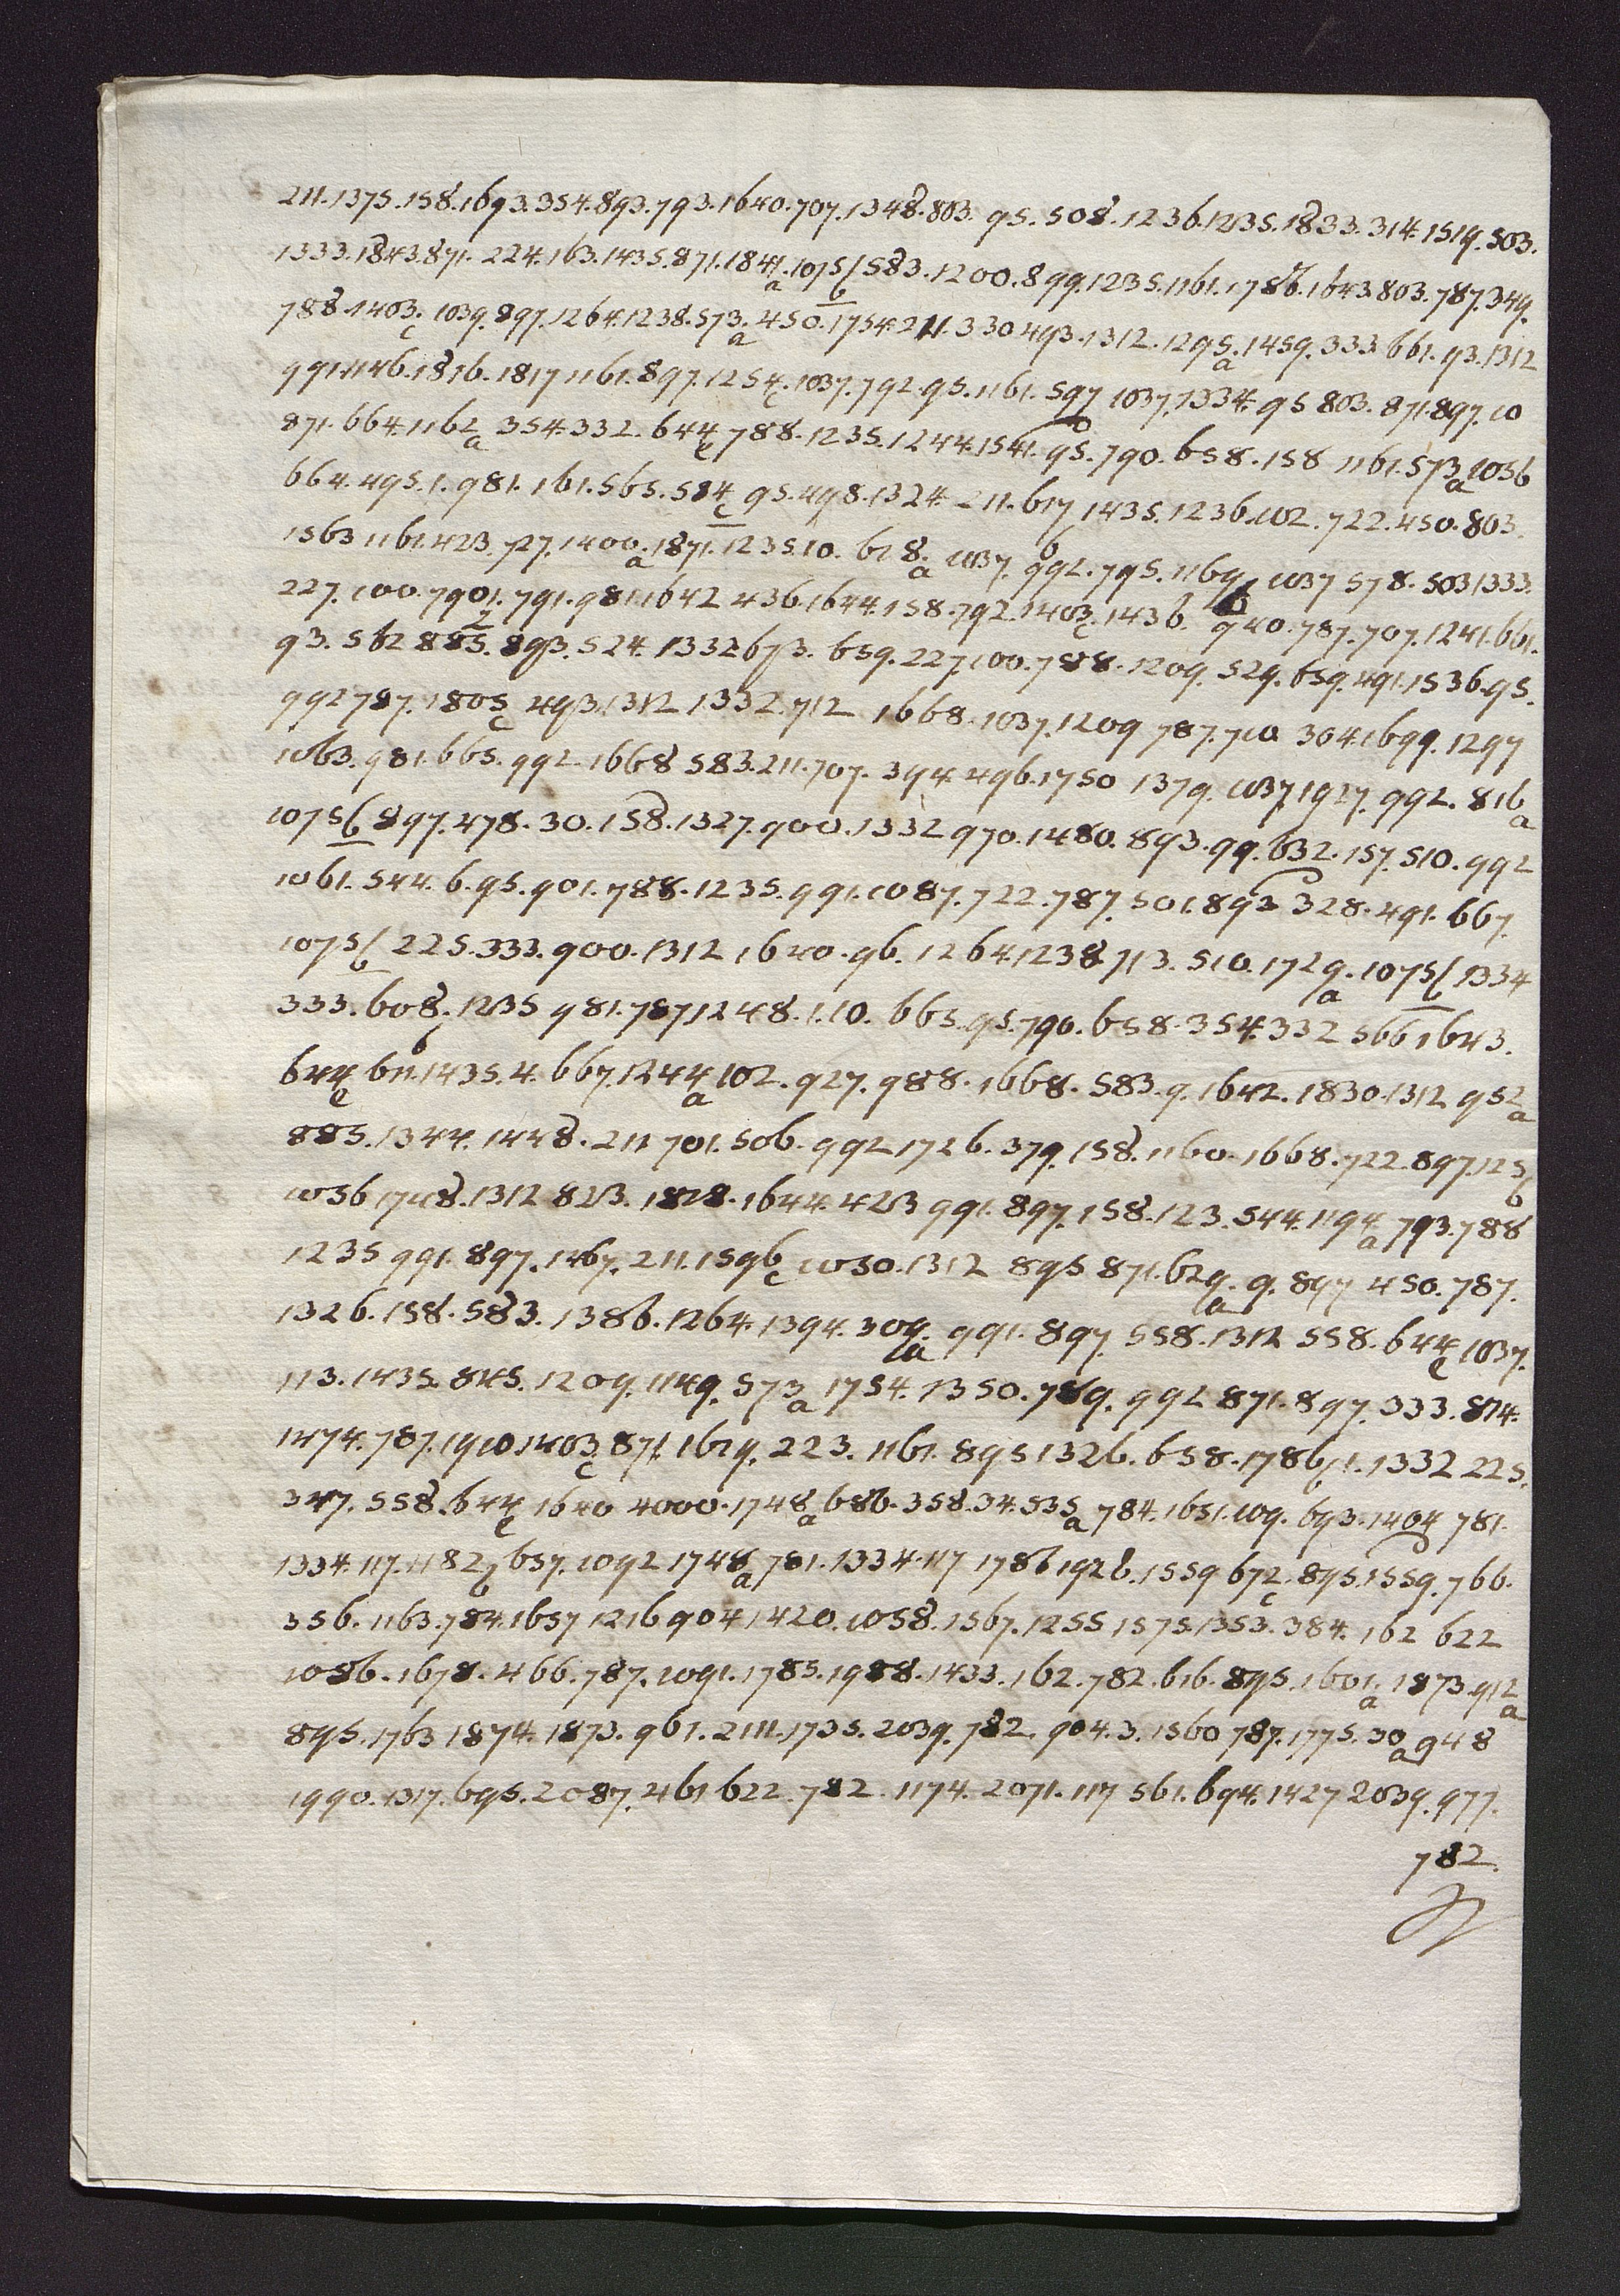 211.1375.158.1693.354.893.793.1640.707.1348.803. 95. 508. 1236.1235.1833.314.1519.503.
1333.1843.871. 224.163.1435.871.1841.a 1075 b 583.1200.899.1235.1161.1786.1643.803.787.349.
788.1403.c 1039.897.1264.1238.573.a 450.1754.211.330 493.1312.1295.a 1459.333.661.93.1312
991.1146.1816.1817 1161.897.1254.c 1037.792.95.1161.597 1037.1334.95 803.871.897.10
871.664.1162 a 354.332.644 c 788.1235.1244.1541.95.790.658.158 1161.573 a 1056
664.495.1.981.161.565.584 c 95.498.1324.211.617 1435.1236.102.722.450.803.
1563 1161.423.727.1400.a 1871.1235.10.618.a 1037.992.795.1169 b 1037 578.503 1333.
227.100.7901.791.981.1642 436.1644.158.792.1403.c 1436. 940.787.707.1241.661.
93.562 885.893.524.1332 673.659.227.100.788.1209.529.659.491.1536.95.
992 787.1805 c 493.1312 1332.712 1668.1037.1209 787.710 304.1699.1297
1063.981.665.992.1668 583.211.707.394.496.1750 1379.1037.1927.992.816 a
1075 b 897.478.30.158.1327.900.1332 970.1480.893.99.632.157.510.992
1061.544.6.95.901.788.1235.991.1087.722.787.501.893 328.491.667.
1075 b 225.333.900.1312 1640.96.1264.1238 713.510.1729.a 1075 b 1334
333.608.1235 981.787 1248.1.10.665.95.790.658.354.332 566 1643.
644 c 611.1435.4.667.1244 a 102.927.988.1668.583.9.1642.1830.1312 952 a
885.1344.1448.211 701.506.992 1726.379.158.1160.1668.722.897.125 b
1056 1708.1312 823.1828.1644.423 991.897.158.123.544.1194 a 793.788
1235 991.897.1467.211.1596 c 1050.1312 895 871.629.a 9.897 450.787.
1326.158.583.1386.1264.1394.309.a 991.897 558.1312 558.644 c 1037.
113.1435.845.1209.1149.573 a 1754.1350.789.992 871.897.333.874.
1474.787.1910.1403 c 871.1619.223.1161.895 1326.658.1786.1.1332 225.
347.558.644 c 1640 4000.1748 a 686.358.34.535 a 784.1651.109.693.1404 781.
1334.117.1182 b 657.1092 1748 a 781.1334.117 1786 1926.1559 672 c 895.1559.766.
356.1163.784.1657 1216 904 1420.1058.1567.1255 1575.1353.384.162 622
1086.1678.466.787.1091.1785.1988.1433.162.782.616.895.1601.a 1873.912 a
895.1763 1874.1873.961.2111.1735.2039.782 904.3.1560 787.1775.30 a 948
1990.1317.695.2087.461 622.782.1174.2071.117 561.694.1427 2039.977.
782.